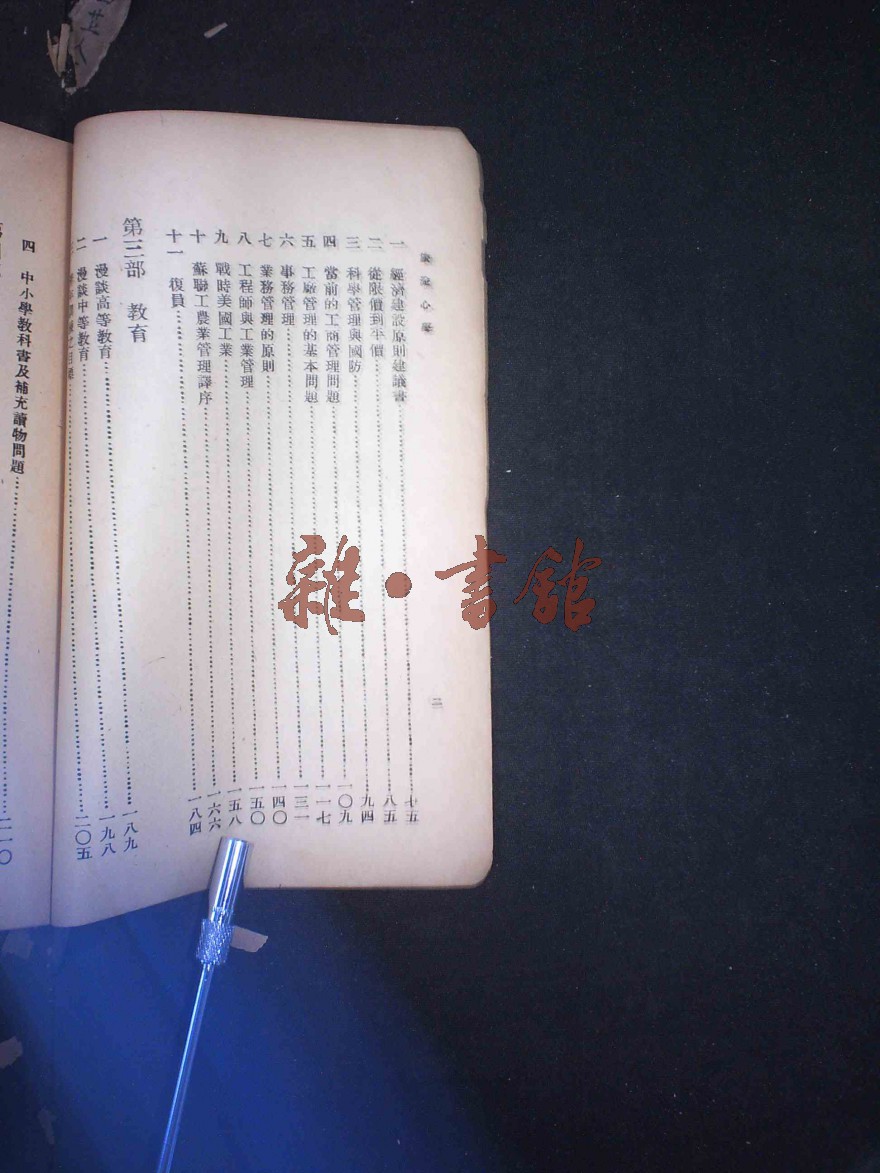 旅渝心聲
二
一 經濟建設原則建議書……七五
二 從限價到平價……八五
三 科學管理與國防……九四
四 當前的工商管理問題……一〇九
五 工廠管理的基本問題……一一七
六 事務管理……一三一
七 業務管理的原則……一四〇
八 工程師與工業管理……一五〇
九 戰時美國工業……一五八
十 蘇聯工農業管理譯序……一六六
十一 復員……一八四
第三部 教育
一 漫談高等教育……一八九
二 漫談中等教育……一九八
三 之目標……二〇五
四 中小學教科書及補充讀物問題……二一〇
雜·書館